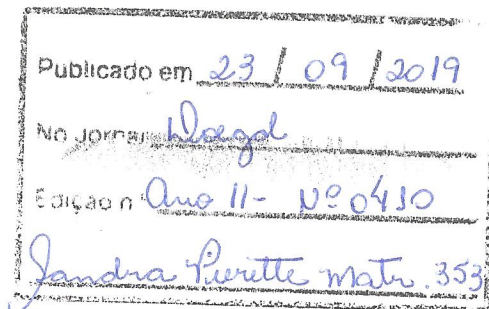 Publicado em 23 / 09 / 2019
No Jornal
Edição n° Ano II- Nº 0410
Sandra Pierette matr. 353